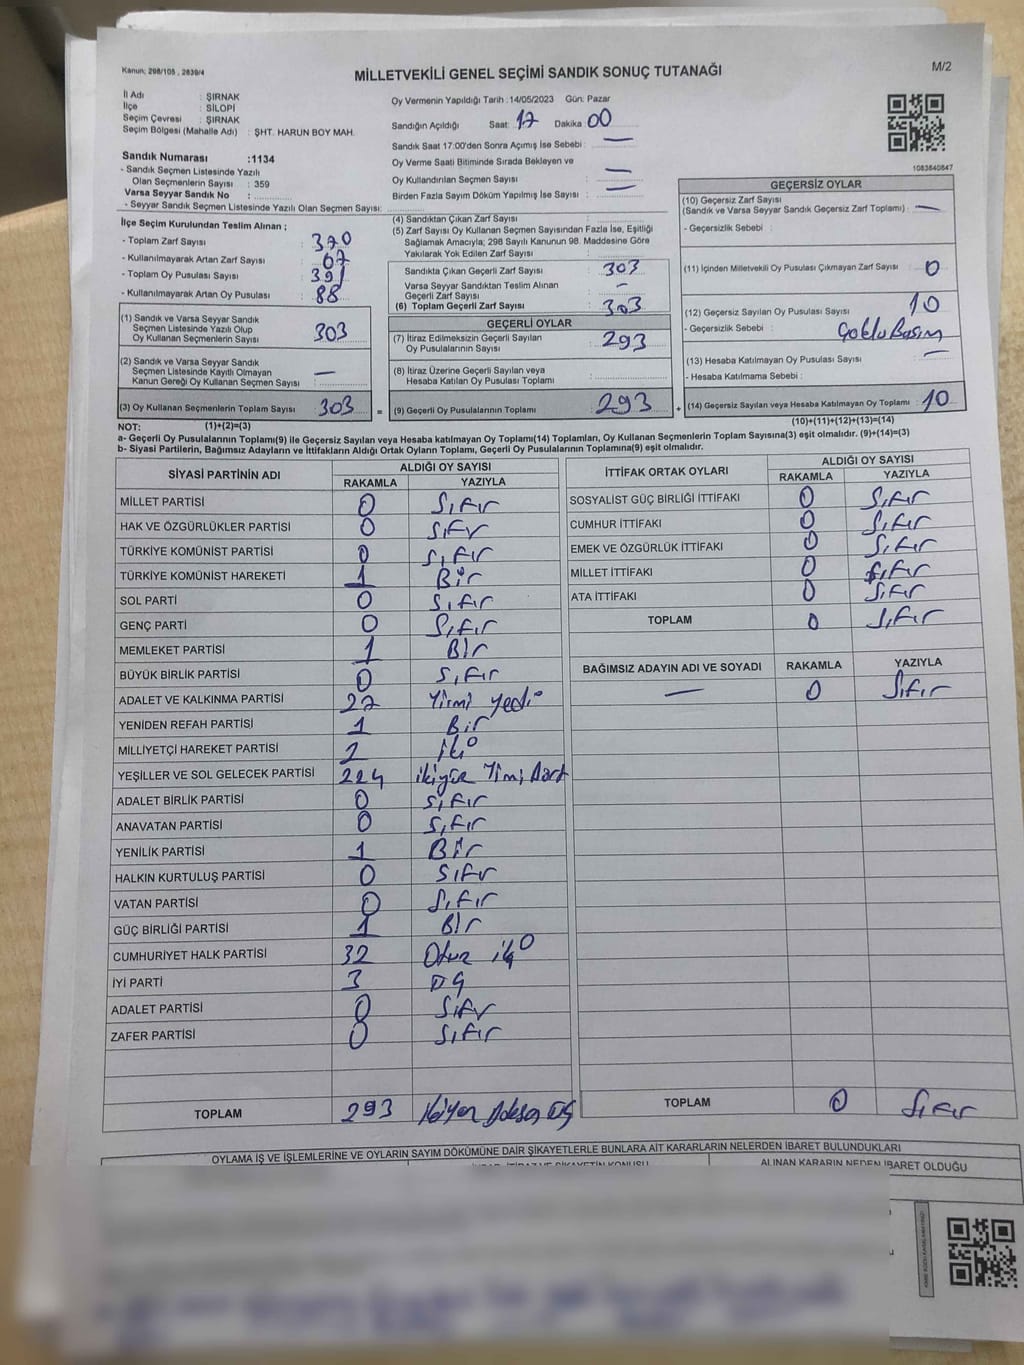 Kanun; 298/105 , 2839/4
MİLLETVEKİLİ GENEL SEÇİMİ SANDIK SONUÇ TUTANAĞI
M/2
İl Adı : ŞIRNAK
İlçe : SİLOPİ
Seçim Çevresi : ŞIRNAK
Seçim Bölgesi (Mahalle Adı) : ŞHT. HARUN BOY MAH.
Sandık Numarası :1134
- Sandık Seçmen Listesinde Yazılı
Olan Seçmenlerin Sayısı : 359
Varsa Seyyar Sandık No :
- Seyyar Sandık Seçmen Listesinde Yazılı Olan Seçmen Sayısı:
Oy Vermenin Yapıldığı Tarih :14/05/2023 Gün: Pazar
Sandığın Açıldığı Saat: 17 Dakika: 00
Sandık Saat 17:00'den Sonra Açımış İse Sebebi : —
Oy Verme Saati Bitiminde Sırada Bekleyen ve
Oy Kullandırılan Seçmen Sayısı : —
Birden Fazla Sayım Döküm Yapılmış İse Sayısı : —
1083840847
İlçe Seçim Kurulundan Teslim Alınan ;
- Toplam Zarf Sayısı : 370
- Kullanılmayarak Artan Zarf Sayısı : 67
- Toplam Oy Pusulası Sayısı : 391
- Kullanılmayarak Artan Oy Pusulası : 88
(1) Sandık ve Varsa Seyyar Sandık
Seçmen Listesinde Yazılı Olup
Oy Kullanan Seçmenlerin Sayısı : 303
(2) Sandık ve Varsa Seyyar Sandık
Seçmen Listesinde Kayıtlı Olmayan
Kanun Gereği Oy Kullanan Seçmen Sayısı : —
(3) Oy Kullanan Seçmenlerin Toplam Sayısı : 303 =
(4) Sandıktan Çıkan Zarf Sayısı :
(5) Zarf Sayısı Oy Kullanan Seçmen Sayısından Fazla İse, Eşitliği
Sağlamak Amacıyla; 298 Sayılı Kanunun 98. Maddesine Göre
Yakılarak Yok Edilen Zarf Sayısı :
Sandıkta Çıkan Geçerli Zarf Sayısı : 303
Varsa Seyyar Sandıktan Teslim Alınan
Geçerli Zarf Sayısı : —
(6) Toplam Geçerli Zarf Sayısı : 303
GEÇERLİ OYLAR
(7) İtiraz Edilmeksizin Geçerli Sayılan
Oy Pusulalarının Sayısı : 293
(8) İtiraz Üzerine Geçerli Sayılan veya
Hesaba Katılan Oy Pusulası Toplamı :
(9) Geçerli Oy Pusulalarının Toplamı : 293 +
GEÇERSİZ OYLAR
(10) Geçersiz Zarf Sayısı
(Sandık ve Varsa Seyyar Sandık Geçersiz Zarf Toplamı) : —
- Geçersizlik Sebebi :
(11) İçinden Milletvekili Oy Pusulası Çıkmayan Zarf Sayısı : 0
(12) Geçersiz Sayılan Oy Pusulası Sayısı : 10
- Geçersizlik Sebebi : Çoklu Basım
(13) Hesaba Katılmayan Oy Pusulası Sayısı : —
- Hesaba Katılmama Sebebi :
(14) Geçersiz Sayılan veya Hesaba Katılmayan Oy Toplamı : 10
NOT: (1)+(2)=(3) (10)+(11)+(12)+(13)=(14)
a- Geçerli Oy Pusulalarının Toplamı(9) ile Geçersiz Sayılan veya Hesaba katılmayan Oy Toplamı(14) Toplamları, Oy Kullanan Seçmenlerin Toplam Sayısına(3) eşit olmalıdır. (9)+(14)=(3)
b- Siyasi Partilerin, Bağımsız Adayların ve İttifakların Aldığı Ortak Oyların Toplamı, Geçerli Oy Pusulalarının Toplamına(9) eşit olmalıdır.
SİYASİ PARTİNİN ADI ALDIĞI OY SAYISI
RAKAMLA YAZIYLA
MİLLET PARTİSİ 0 Sıfır
HAK VE ÖZGÜRLÜKLER PARTİSİ 0 Sıfır
TÜRKİYE KOMÜNİST PARTİSİ 0 Sıfır
TÜRKİYE KOMÜNİST HAREKETİ 1 Bir
SOL PARTİ 0 Sıfır
GENÇ PARTİ 0 Sıfır
MEMLEKET PARTİSİ 1 Bir
BÜYÜK BİRLİK PARTİSİ 0 Sıfır
ADALET VE KALKINMA PARTİSİ 27 Yirmi yedi
YENİDEN REFAH PARTİSİ 1 Bir
MİLLİYETÇİ HAREKET PARTİSİ 2 iki
YEŞİLLER VE SOL GELECEK PARTİSİ 224 ikiyüz Yimi Dört
ADALET BİRLİK PARTİSİ 0 Sıfır
ANAVATAN PARTİSİ 0 Sıfır
YENİLİK PARTİSİ 1 Bir
HALKIN KURTULUŞ PARTİSİ 0 Sıfır
VATAN PARTİSİ 0 Sıfır
GÜÇ BİRLİĞİ PARTİSİ 1 Bir
CUMHURİYET HALK PARTİSİ 32 Otuz iki
İYİ PARTİ 3 üç
ADALET PARTİSİ 0 Sıfır
ZAFER PARTİSİ 0 Sıfır
TOPLAM 293
İTTİFAK ORTAK OYLARI ALDIĞI OY SAYISI
RAKAMLA YAZIYLA
SOSYALİST GÜÇ BİRLİĞİ İTTİFAKI 0 Sıfır
CUMHUR İTTİFAKI 0 Sıfır
EMEK VE ÖZGÜRLÜK İTTİFAKI 0 Sıfır
MİLLET İTTİFAKI 0 Sıfır
ATA İTTİFAKI 0 Sıfır
TOPLAM 0 Sıfır
BAĞIMSIZ ADAYIN ADI VE SOYADI RAKAMLA YAZIYLA
— 0 Sıfır
TOPLAM 0 Sıfır
OYLAMA İŞ VE İŞLEMLERİNE VE OYLARIN SAYIM DÖKÜMÜNE DAİR ŞİKAYETLERLE BUNLARA AİT KARARLARIN NELERDEN İBARET BULUNDUKLARI
ALINAN KARARIN NEDEN İBARET OLDUĞU